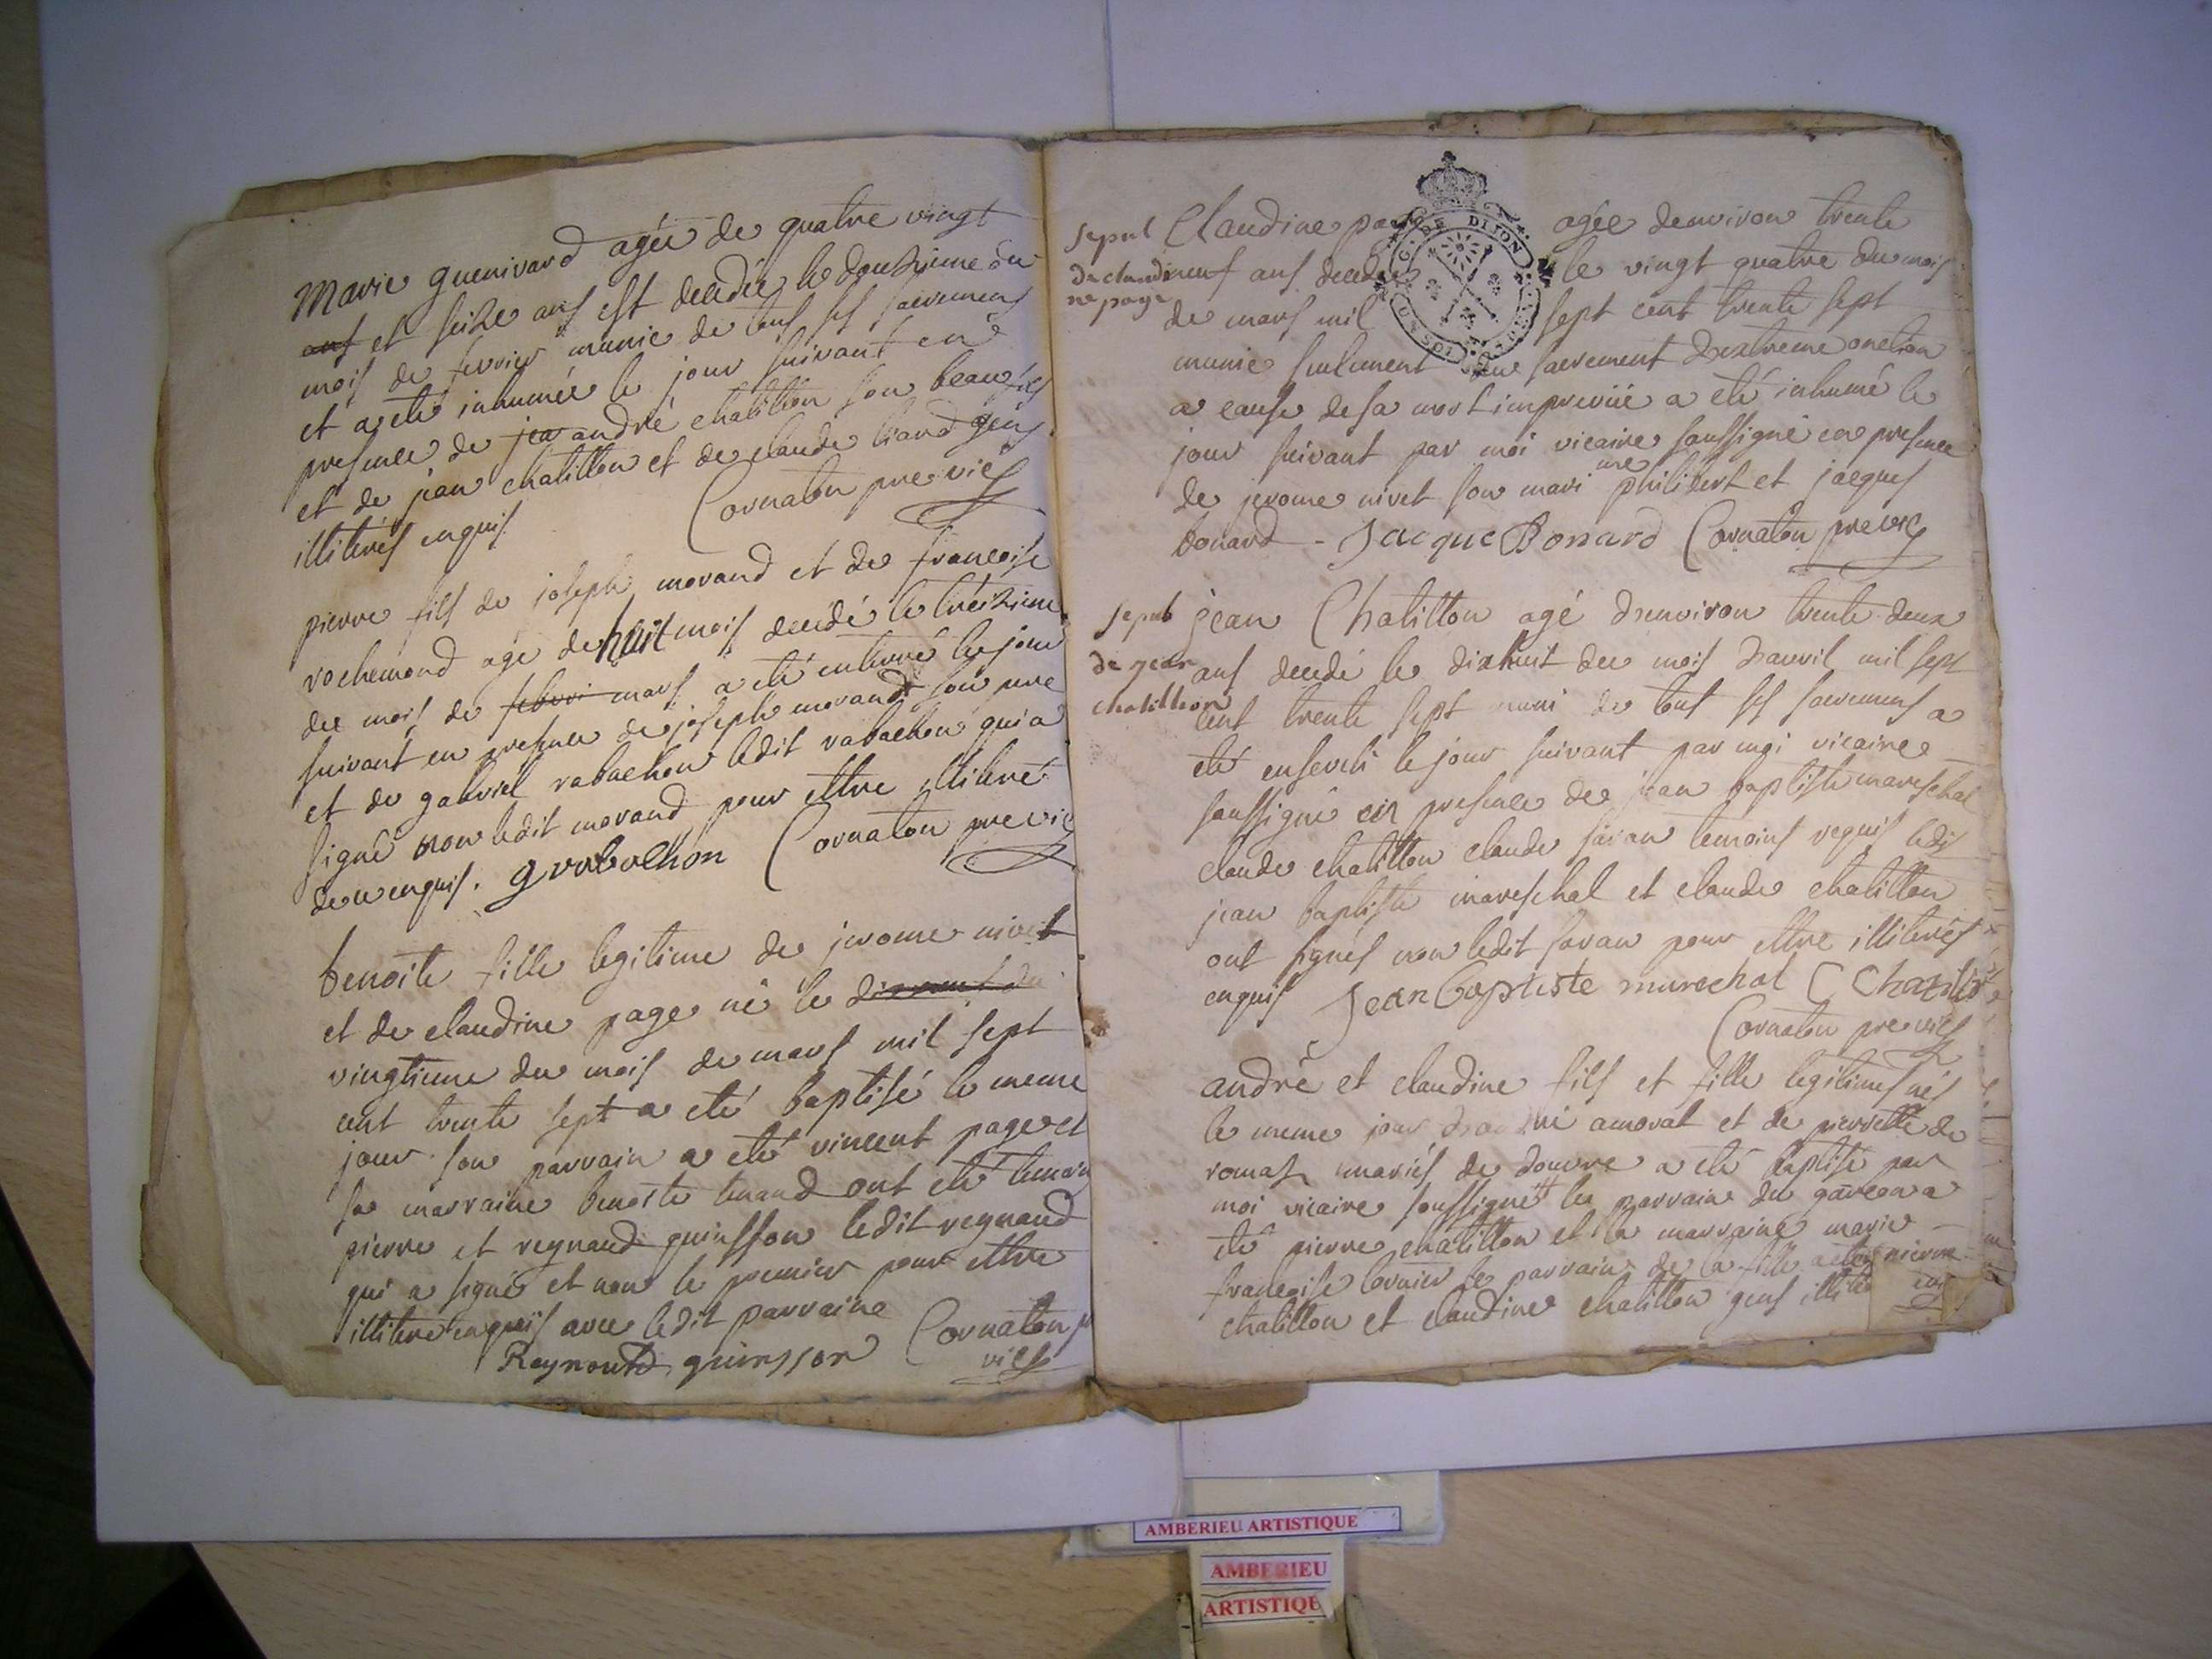 Marie guenivard agée de quatre vingt
ans et seize ans est decedée le douzieme du
mois de fevrier munie de tous ses sacremens
et a eté inhumée le jour suivant en
presence de jea andré chatillon son beau fils
et de jean chatillon et de claude liand gens
illiterés enquis. Cornaton pre vic
pierre fils de joseph morand et de francoise
rochemond agé de huit mois decedé le treizieme
du mois de febvri mars a eté enterré le jour
suivant en presence de joseph morand son pere
et de gabriel rabachon ledit rabachon qui a
signé non ledit morand pour ettre illiteré
de ce enquis. g rabachon Cornaton pre vic
benoite fille legitime de jerome nivet
et de claudine page né le
vingtieme du mois de mars mil sept
cent trente sept a eté baptisé le meme
jour son parrain a eté vincent page et
sa marraine benoite tenand ont eté temoin
pierre et reynaud guinsson ledit reynaud
qui a signé et non le premier pour ettre
illiteré enquis avec ledit parraine
Reynould guinsson Cornaton pr
vic
sepul Claudine page agée denviron trente
de claudi neuf ans decedée le vingt quatre du mois
ne page de mars mil sept cent trente sept
munie seulement du sacrement dextreme onction
a cause de sa mort imprevüe a eté inhumé le
jour suivant par moi vicaire soussigné en presence
de jerome nivet son mari me philibert et jacques
bonard - Jacque Bonard Cornaton pre vic
G. DE DIJON
sepul jean Chatillon agé denviron trente deux
de jean ans decedé le dixhuit du mois d'avril mil sept
chatillon cent trente sept muni de tous ses sacremens a
eté enseveli le jour suivant par moi vicaire
soussigné en presence de jean baptiste mareschal
claude chatillon claude savan temoins requis ledit
jean baptiste mareschal et claude chatillon
ont signés non ledit savan pour ettre illiterés
enquis Jean Baptiste marechal C Chatillon
Cornaton pre vic
andré et claudine fils et fille legitimes nés
le meme jour d'andré amorat et de pierrette de
romas mariés de douvre a eté baptisé par
moi vicaire soussigné le parrain du garcon a
eté pierre chatillon et la marraine marie
francoise bernier le parrain de la fille a eté pierre
chatillon et claudine chatillon gens illiteré
enq
AMBERIEU ARTISTIQUE
AMBERIEU
ARTISTIQUE